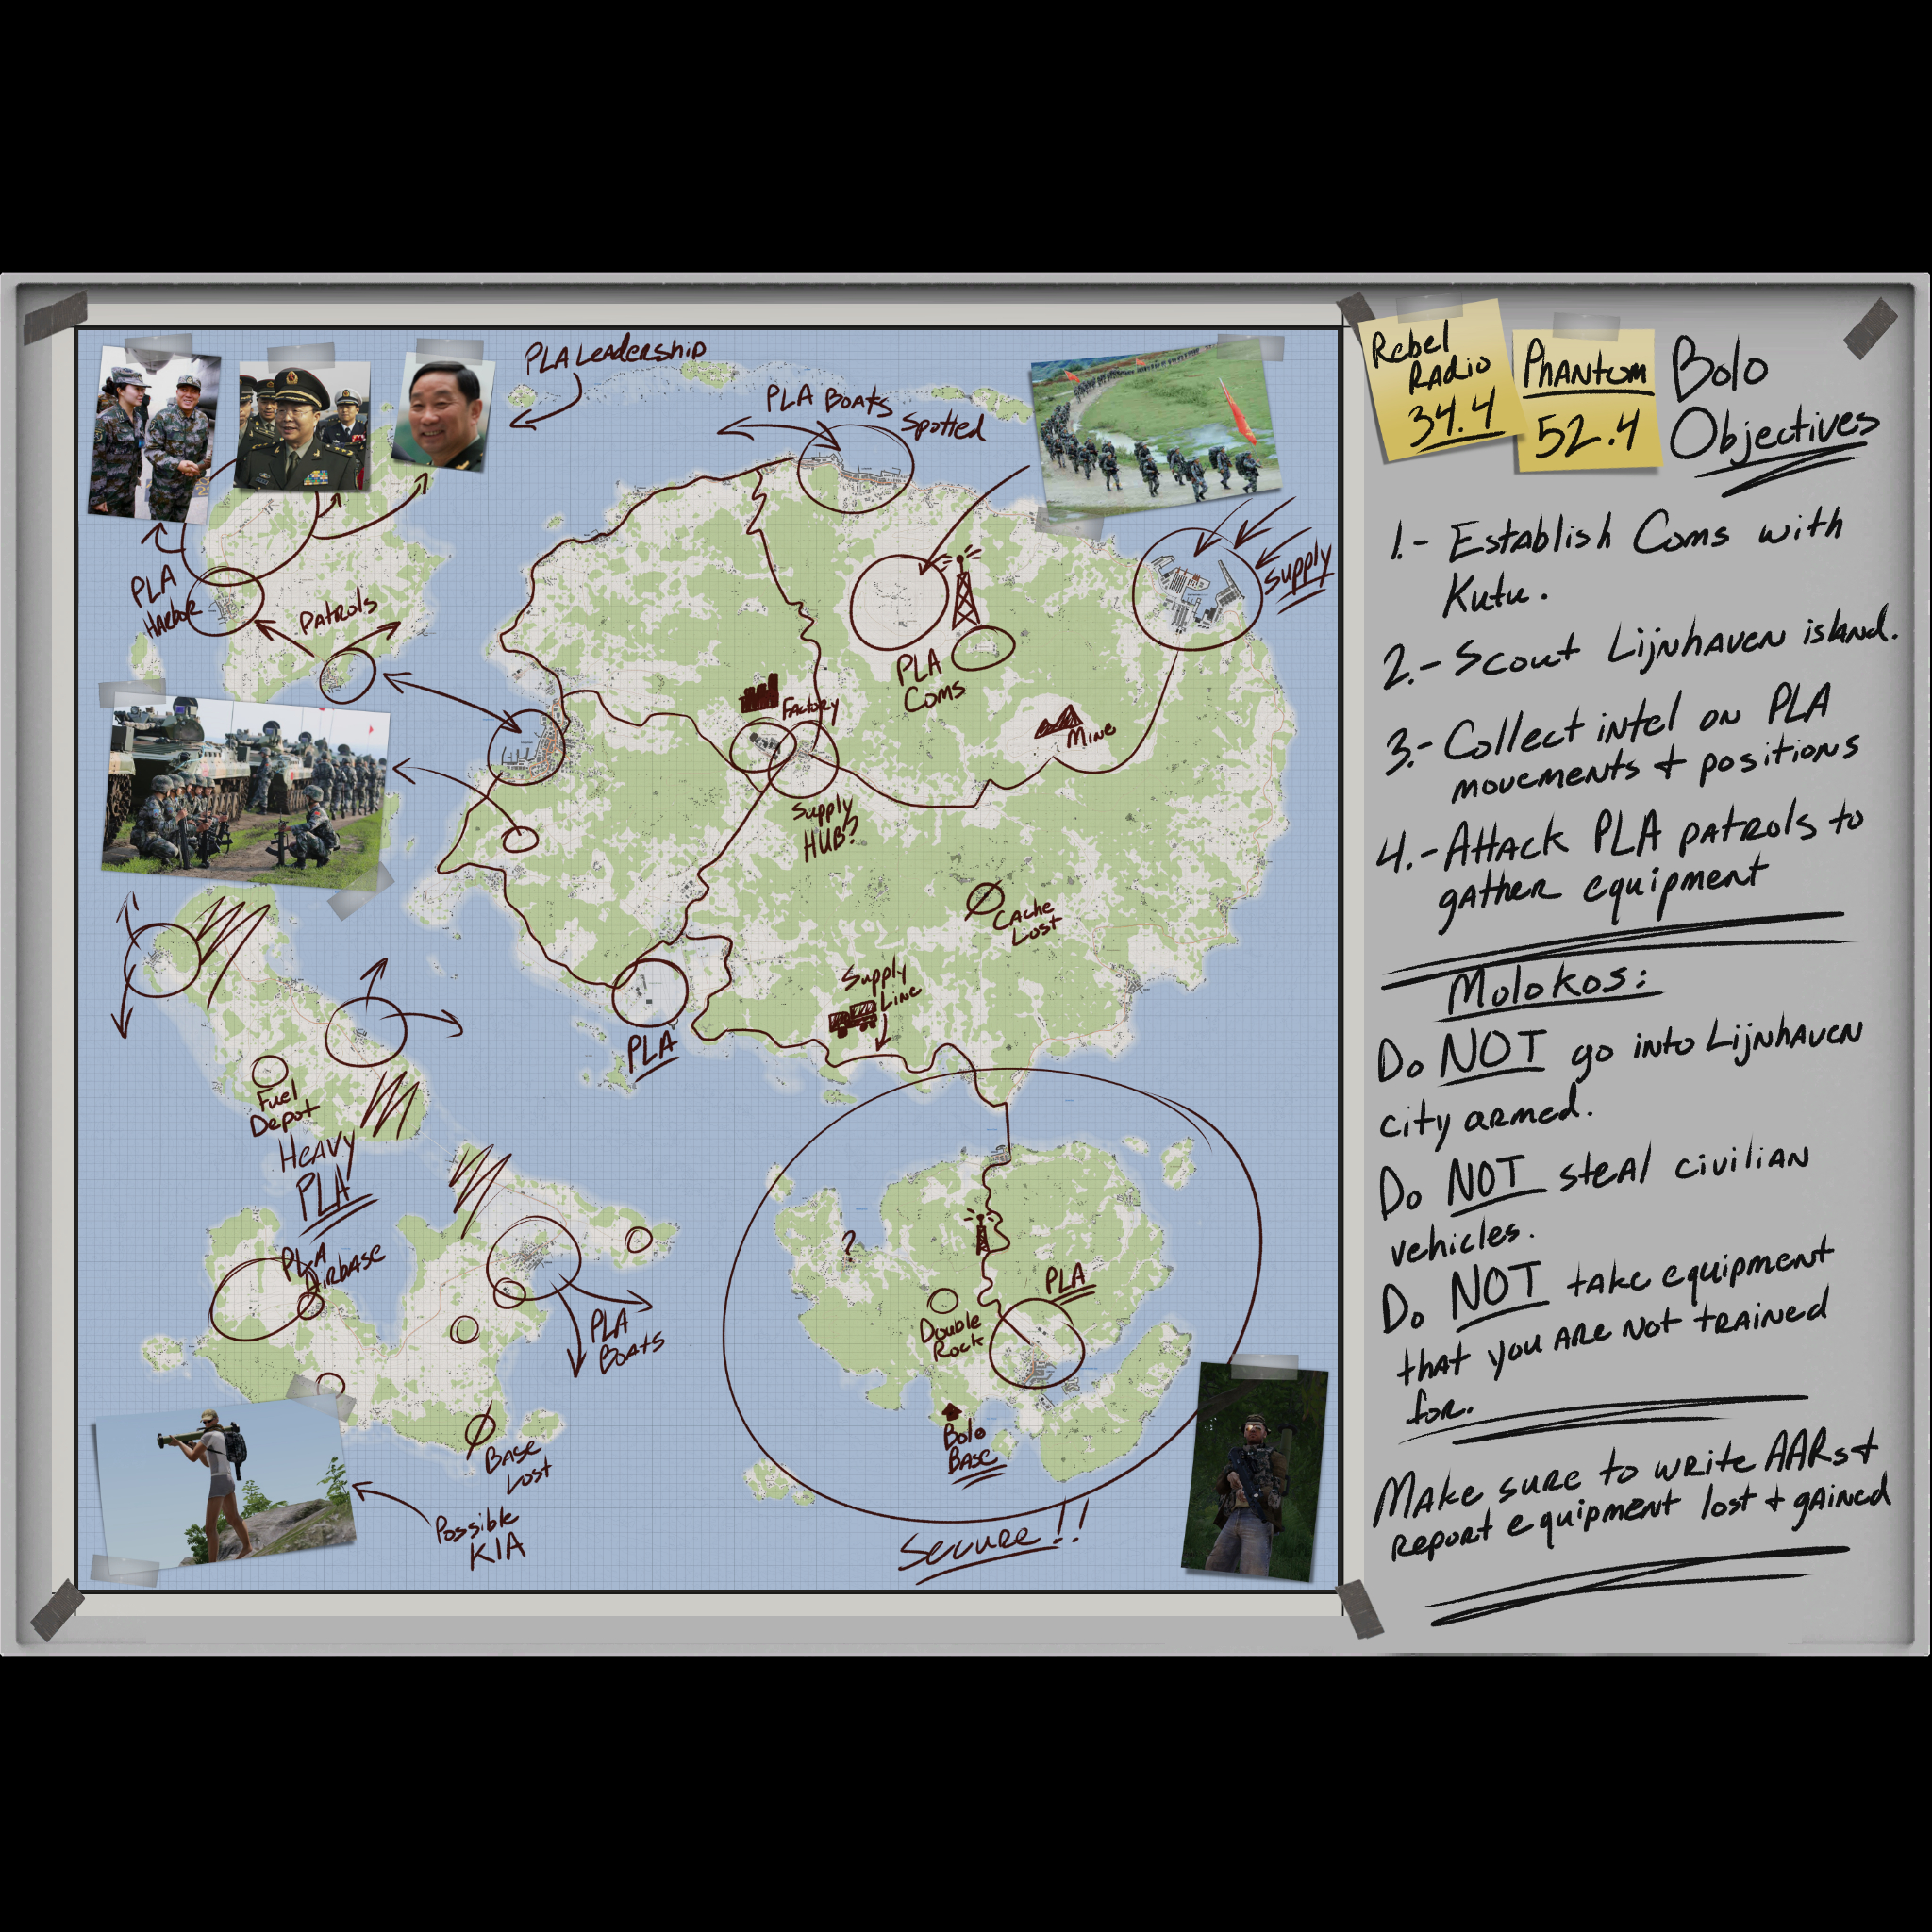 PLA Leadership
PLA Boats
Spotted
Supply
PLA
Harbor
Patrols
PLA
Coms
Factory
Mine
Supply
HUB?
Cache
Lost
Supply
Line
PLA
Fuel
Depot
Heavy
PLA
PLA
Airbase
PLA
Boats
Base
Lost
Possible
KIA
?
PLA
Double
Rock
Bolo
Base
Secure!!
Rebel
Radio
34.4
Phantom
52.4
Bolo
Objectives
1.- Establish Coms with
Kutu.
2.- Scout Lijnhaven island.
3.- Collect intel on PLA
movements + positions
4.- Attack PLA patrols to
gather equipment
Molokos:
Do NOT go into Lijnhaven
city armed.
Do NOT steal civilian
vehicles.
Do NOT take equipment
that you are not trained
for.
Make sure to write AARs +
report equipment lost + gained